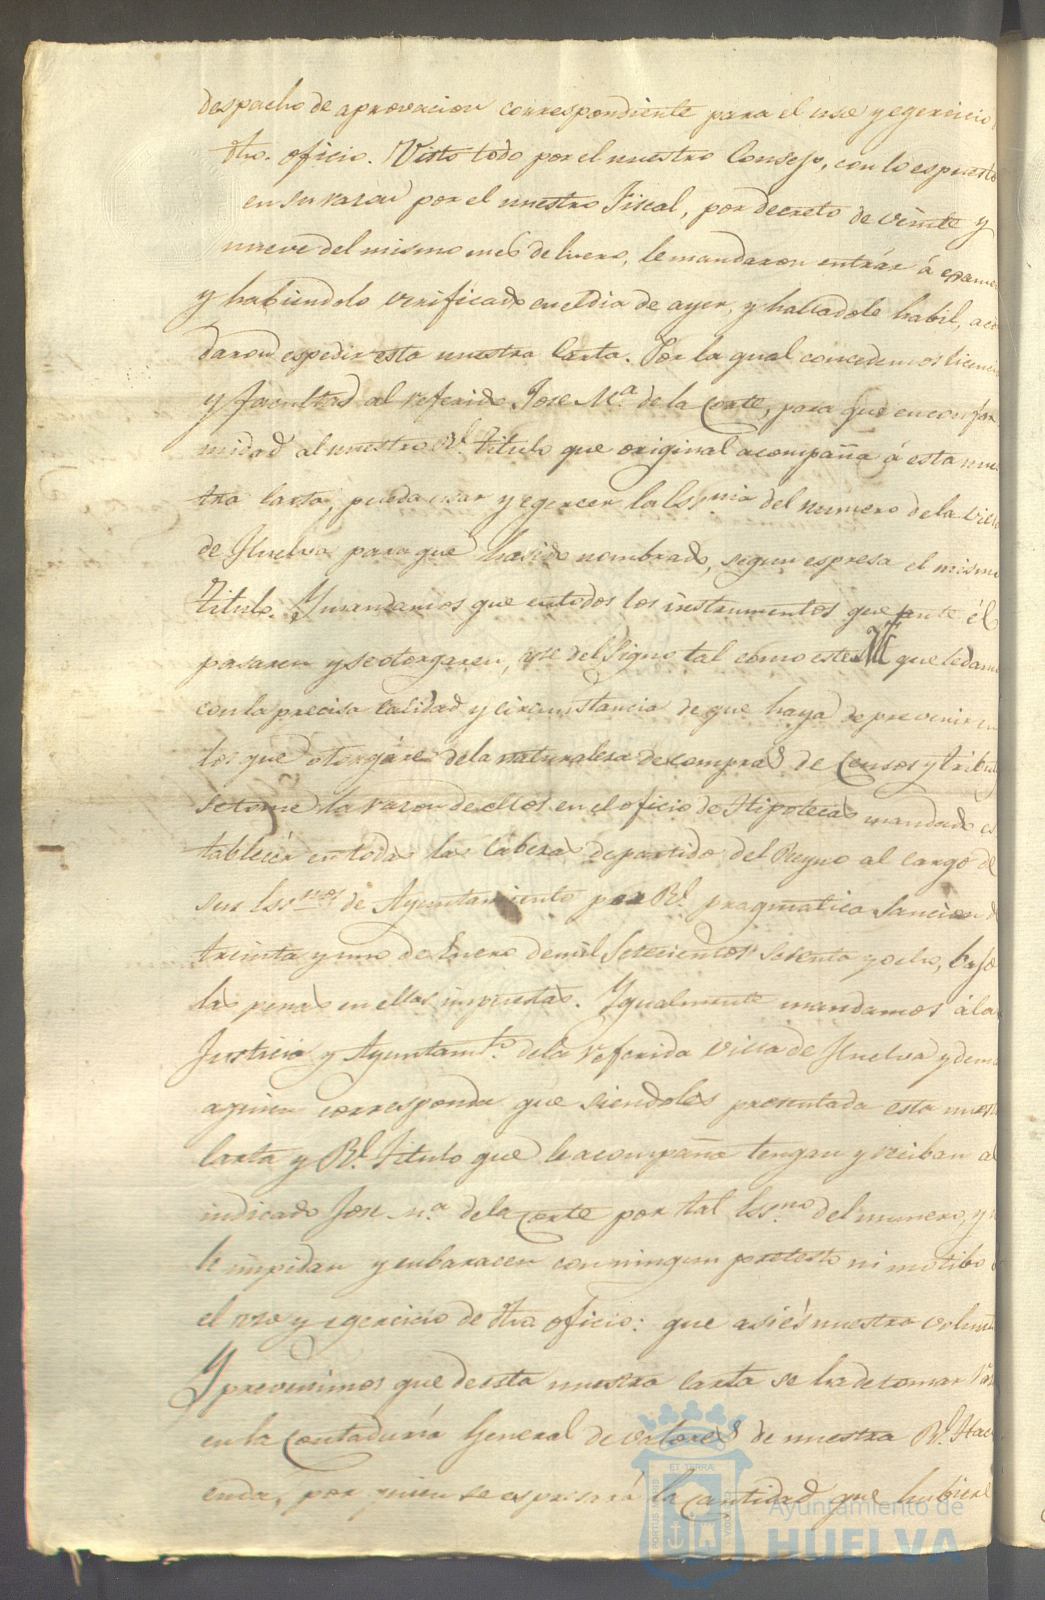 despacho de aprovacion correspondiente para el uso y egercicio
dho. oficio. Visto todo por el nuestro Consejo, con lo espuesto
en su razon por el nuestro Fiscal, por decreto de veinte y
nueve del mismo mes de Enero, le mandaron entrár á exame
y habiendolo verificado en el dia de ayer, y halladole habil, acor
daron espedir esta nuestra Carta. Por la qual concedemos licencia
y facultad al referido Jose Mª. de la Corte, para que en confor
midad al nuestro Rl. titulo que original acompaña á esta nues
tra Carta, pueda usar y egercer la Essnia del numero de la Villa
de Huelva para que ha sido nombrado, segun espresa el mismo
Titulo. Y mandamos que en todos los instrumentos que ante él
pasaren y se otorgaren, use del Signo tal como este que le damos
con la precisa calidad y circunstancia de que haya de prevenir en
los que otorgáre de la naturaleza de compras de Censos y tribu
se tome la razon de ellos en el oficio de Hipotecas mandado es
tablecér en todas las Cabezas de partido del Reyno al cargo de
sus Essnos de Ayuntamiento por Rl. pragmatica Sancion de
treinta y uno de Enero de mil Setecientos sesenta y ocho, bajo
las penas en ellas impuestas. Y gualmente mandamos á la
Justicia y Ayuntamto. de la referida Villa de Huelva y demas
a quien corresponda que siendoles presentada esta nuestra
Carta y Rl. Titulo que le acompaña tengan y reciban al
indicado Jose Mª. de la Corte por tal Essno. del numero, y no
le impidan y enbaracen con ningun protesto ni motibo
el uso y egercicio de dho oficio: que asi és nuestra volunt
Y prevenimos que de esta nuestra Carta se ha de tomar
en la Contaduría General de valores de nuestra Rl. Haci
enda, por quien se espresará la Cantidad que hubiere
ET TERRAE
PORTUS MARIS
CUSTODIA
Ayuntamiento de
HUELVA